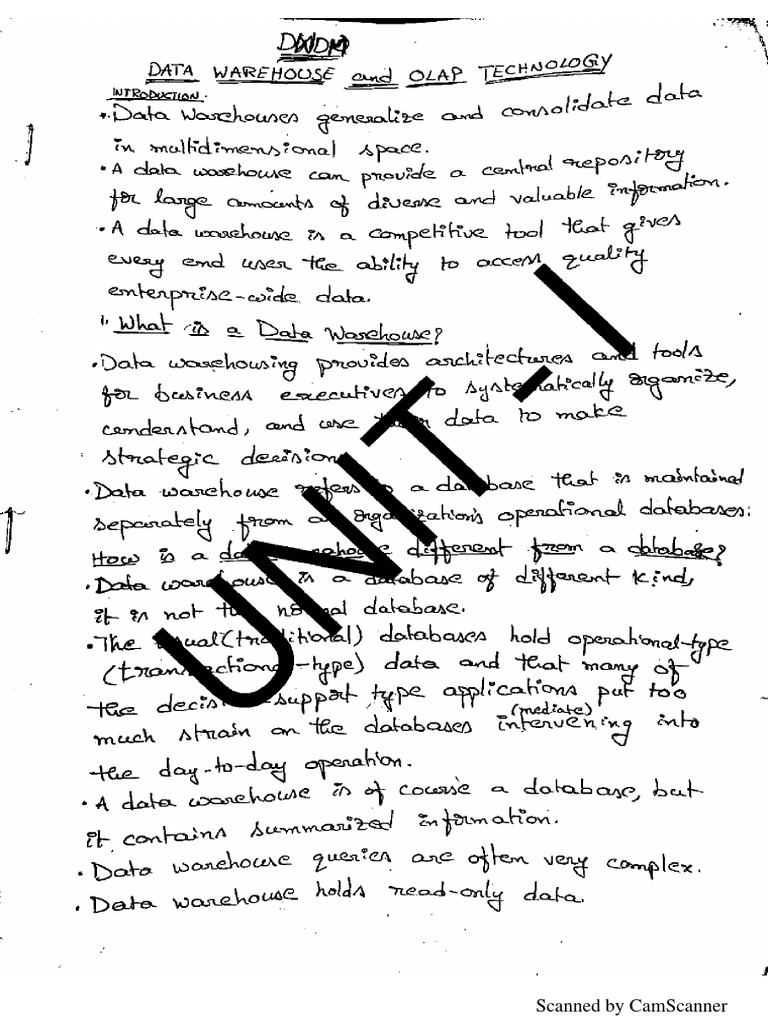 DWDM
DATA WAREHOUSE and OLAP TECHNOLOGY
INTRODUCTION.
• Data Warehouses generalize and consolidate data
in multidimensional space.
• A data warehouse can provide a central repository
for large amounts of diverse and valuable information.
• A data warehouse is a competitive tool that gives
every end user the ability to access quality
enterprise-wide data.
" What is a Data Warehouse?
• Data warehousing provides architectures and tools
for business executives to systematically organize,
cenderstand, and use their data to make
strategic decisions
• Data warehouse refers to a database that is maintained
separately from an organization's operational databases:
How is a data warehouse different from a database?
• Data warehouse is a database of different kind,
it is not the normal database.
• The usual (traditional) databases hold operational-type
(transactional-type) data and that many of
the decision-support type applications put too
much strain on the databases intervening into
(mediate)
the day-to-day operation.
• A data warehouse is of course a database, but
it contains summarized information.
• Data warehouse queries are often very complex.
• Data warehouse holds read-only data.
UNIT - I
Scanned by CamScanner